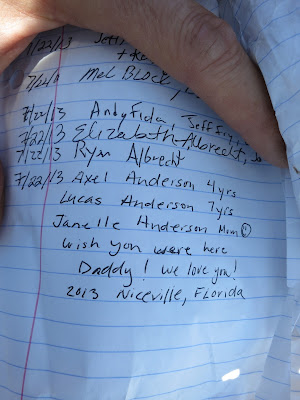 7/22/13
7/22/13 Mel Block,
7/22/13 Andy Fida, Jeff
7/22/13 Elizabeth Albrecht,
7/22/13 Ryan Albrecht
7/22/13 Axel Anderson 4 yrs
Lucas Anderson 7 yrs
Janelle Anderson Mom
Wish you were here
Daddy! We love you!
2013 Niceville, Florida